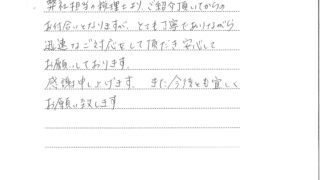 弊社担当の税理士より、ご紹介頂いてからの
お付合いとなりますが、とても丁寧でありながら
迅速なご対応をして頂だき安心して
お願いしております。
感謝申し上げます。また今後とも宜しく
お願い致します